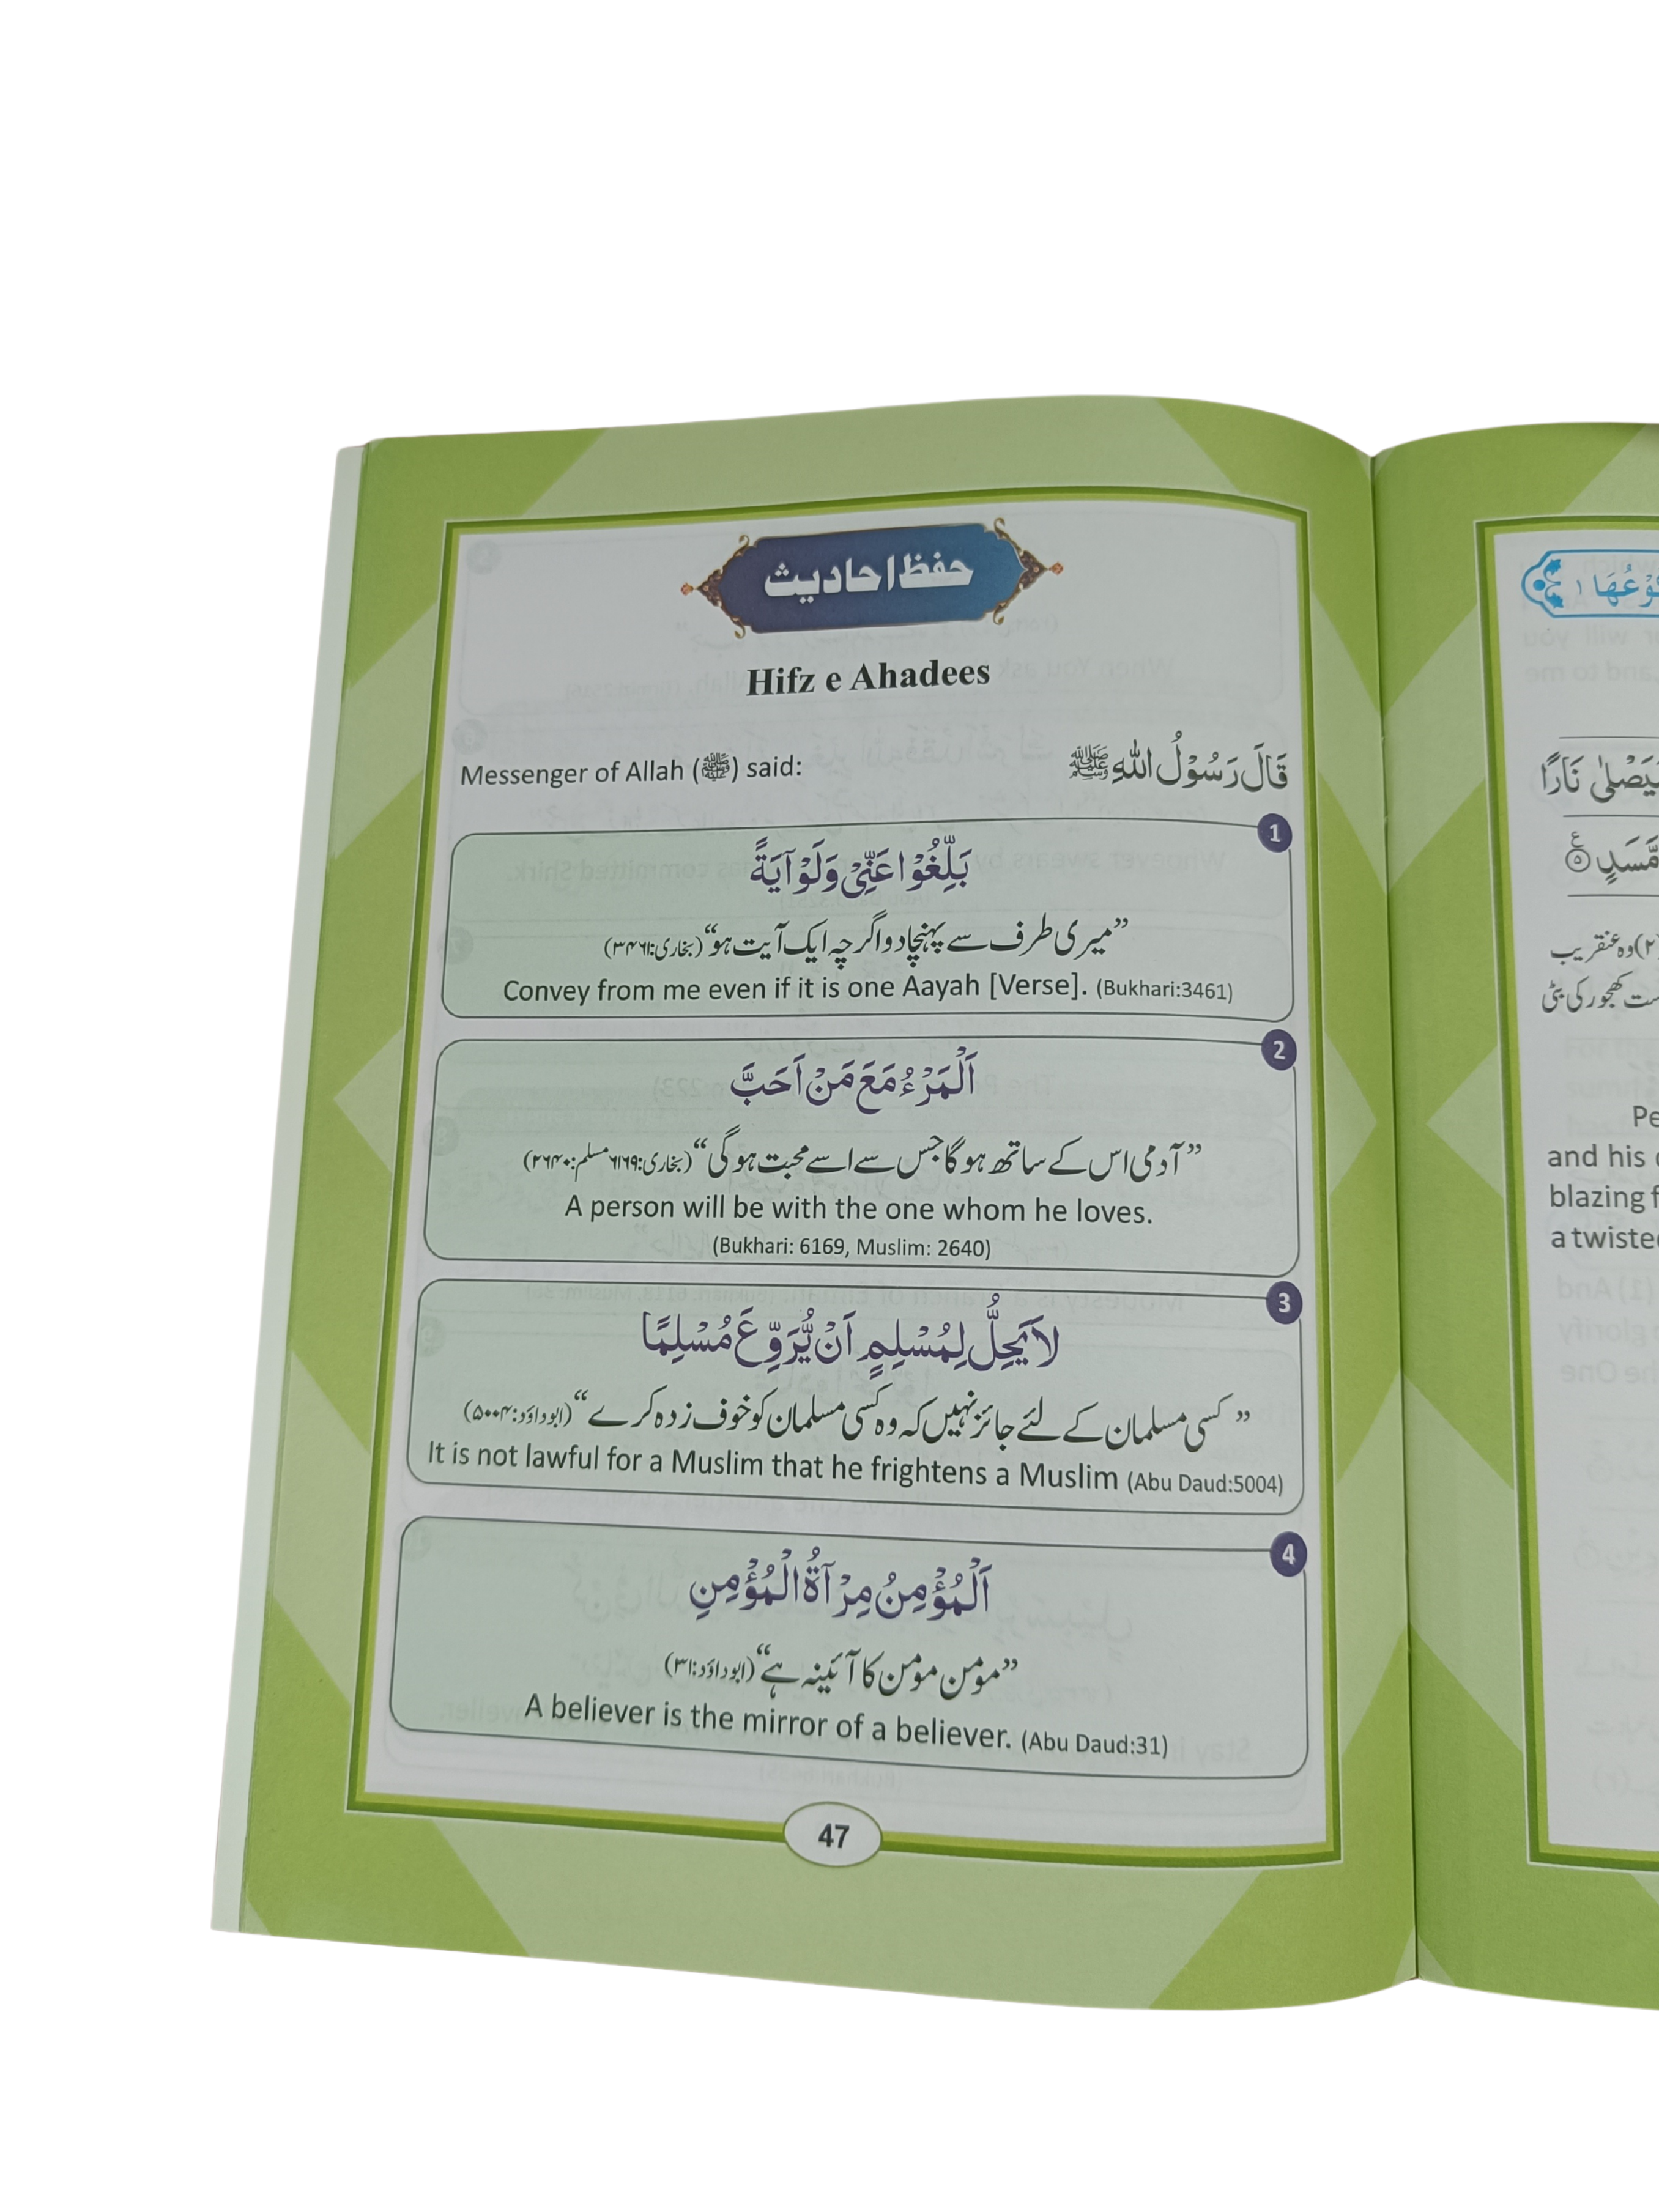 حفظ احادیث
Hifz e Ahadees
Messenger of Allah (ﷺ) said:
قَالَ رَسُوْلُ اللّٰهِ ﷺ
1
بَلِّغُوْا عَنِّىْ وَلَوْ آيَةً
”میری طرف سے پہنچادو اگرچہ ایک آیت ہو“ (بخاری:۳۴۶۱)
Convey from me even if it is one Aayah [Verse]. (Bukhari:3461)
2
اَلْمَرْءُ مَعَ مَنْ اَحَبَّ
”آدمی اس کے ساتھ ہوگا جس سے اسے محبت ہوگی“ (بخاری:۶۱۶۹ مسلم:۲۶۴۰)
A person will be with the one whom he loves.
(Bukhari: 6169, Muslim: 2640)
3
لاَ يَحِلُّ لِمُسْلِمٍ اَنْ يُّرَوِّعَ مُسْلِمًا
”کسی مسلمان کے لئے جائز نہیں کہ وہ کسی مسلمان کو خوف زدہ کرے“ (ابوداؤد:۵۰۰۴)
It is not lawful for a Muslim that he frightens a Muslim (Abu Daud:5004)
4
اَلْمُؤْمِنُ مِرْآةُ الْمُؤْمِنِ
”مؤمن مؤمن کا آئینہ ہے“ (ابوداؤد:۳۱)
A believer is the mirror of a believer. (Abu Daud:31)
47
نَارًا
مَّسَدٍ
(۲) وہ عنقریب
کھجور کی بٹی
and his
blazing
a twiste